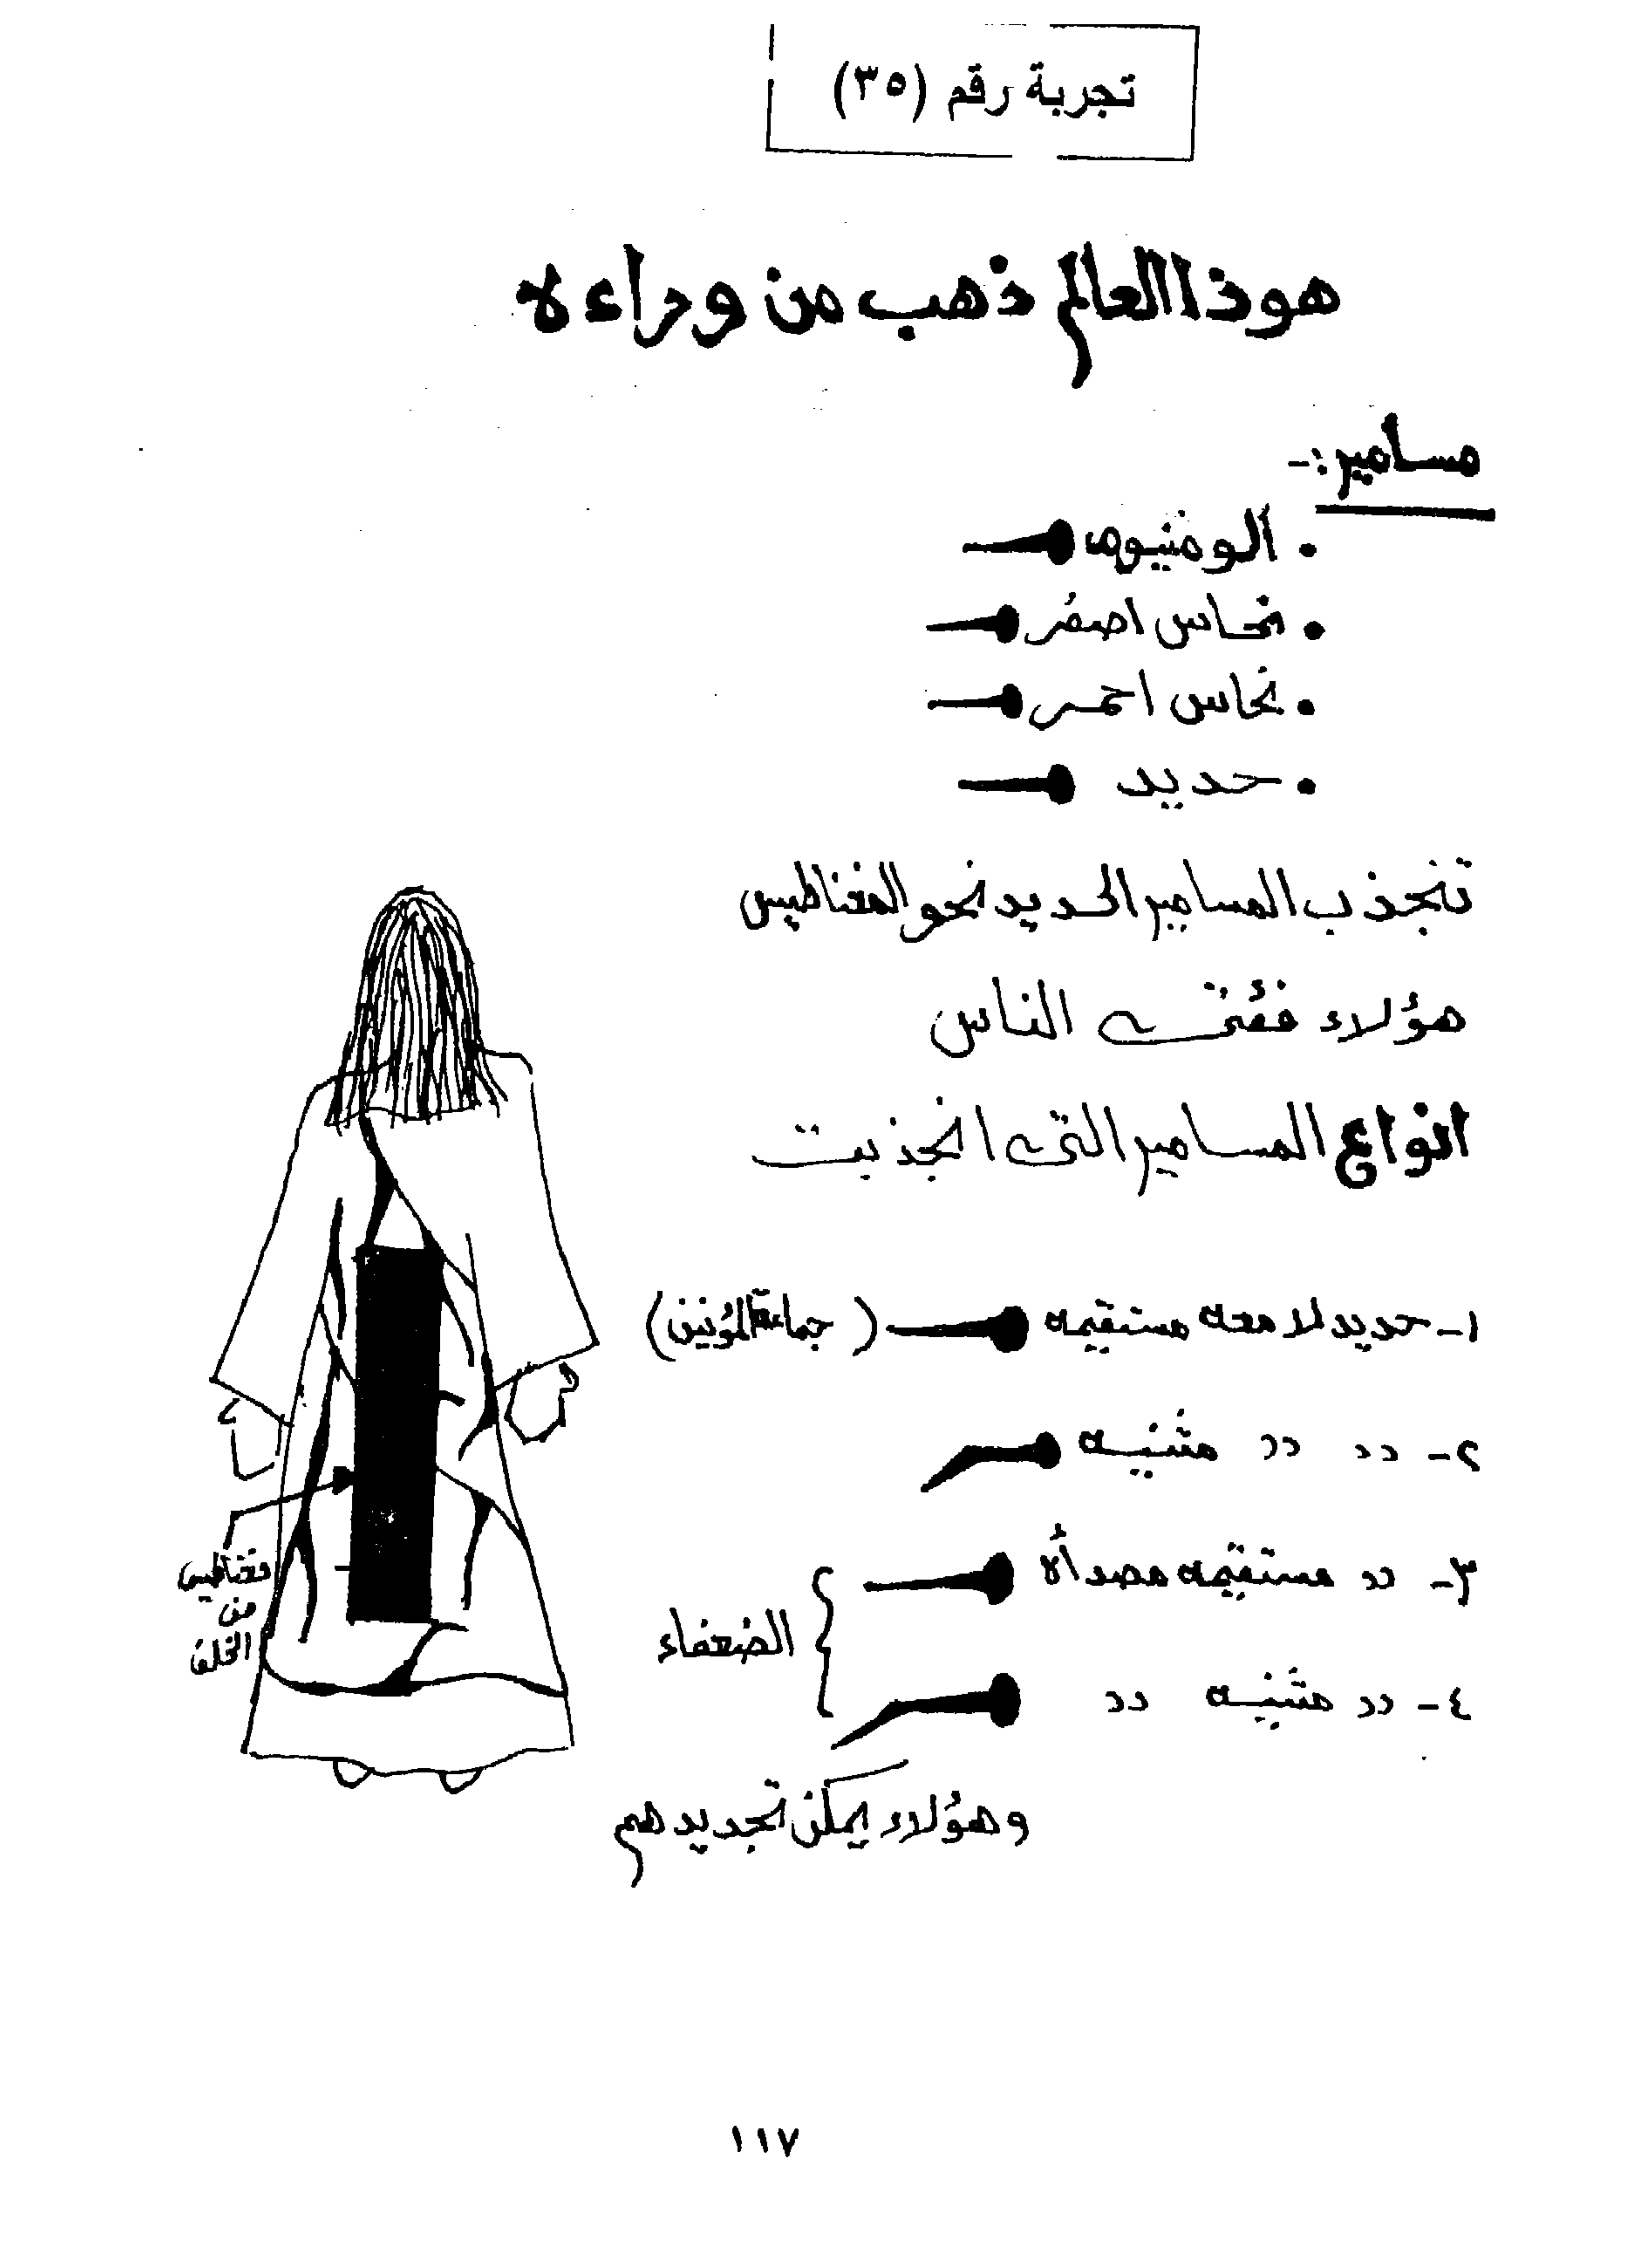 تجربة رقم (٣٥)
هوذا العالم ذهب من وراءه
مسامير :-
• ألومنيوم
• نحاس اصفر
• نحاس احمر
• حديد
تنجذب المسامير الحديد نحو المغناطيس
هؤلاء فئتى الناس
انواع المسامير التى انجذبت
١- حديد لامعه مستقيمه (جماعة المؤمنين)
٢- دد دد مثنيه
٣- دد مستقيمه مصدأه
الضعفاء
٤- دد مثنيه دد
وهؤلاء يمكن تجديدهم
مغناطيس
من
الخلف
١١٧